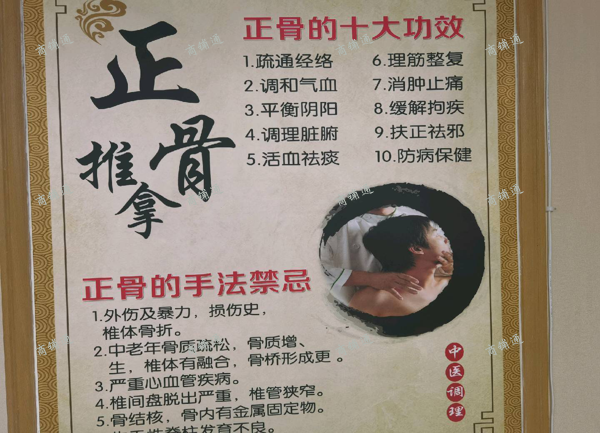 正骨
推拿
正骨的十大功效
1.疏通经络
2.调和气血
3.平衡阴阳
4.调理脏腑
5.活血祛痰
6.理筋整复
7.消肿止痛
8.缓解拘疾
9.扶正祛邪
10.防病保健
正骨的手法禁忌
1.外伤及暴力，损伤史，
椎体骨折。
2.中老年骨质疏松，骨质增、
生，椎体有融合，骨桥形成更。
3.严重心血管疾病。
4.椎间盘脱出严重，椎管狭窄。
5.骨结核，骨内有金属固定物。
脊柱发育不良。
中医调理
商铺通